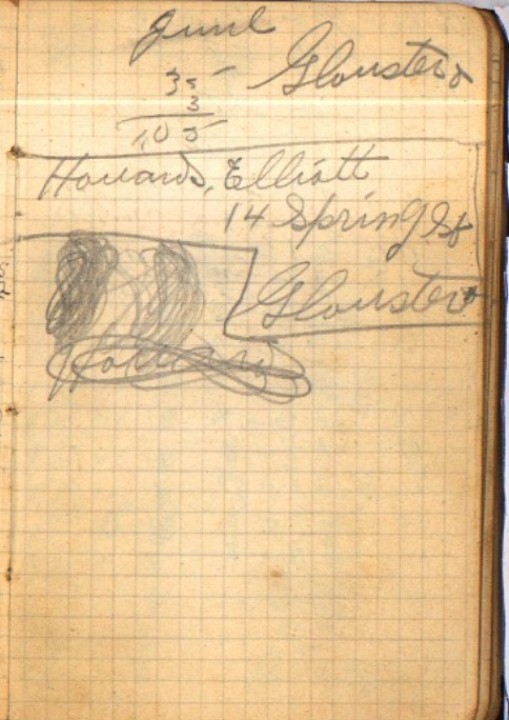 June
Glouster
35
3
105
Howard, Elliott
14 Spring St
Glouster
Howard